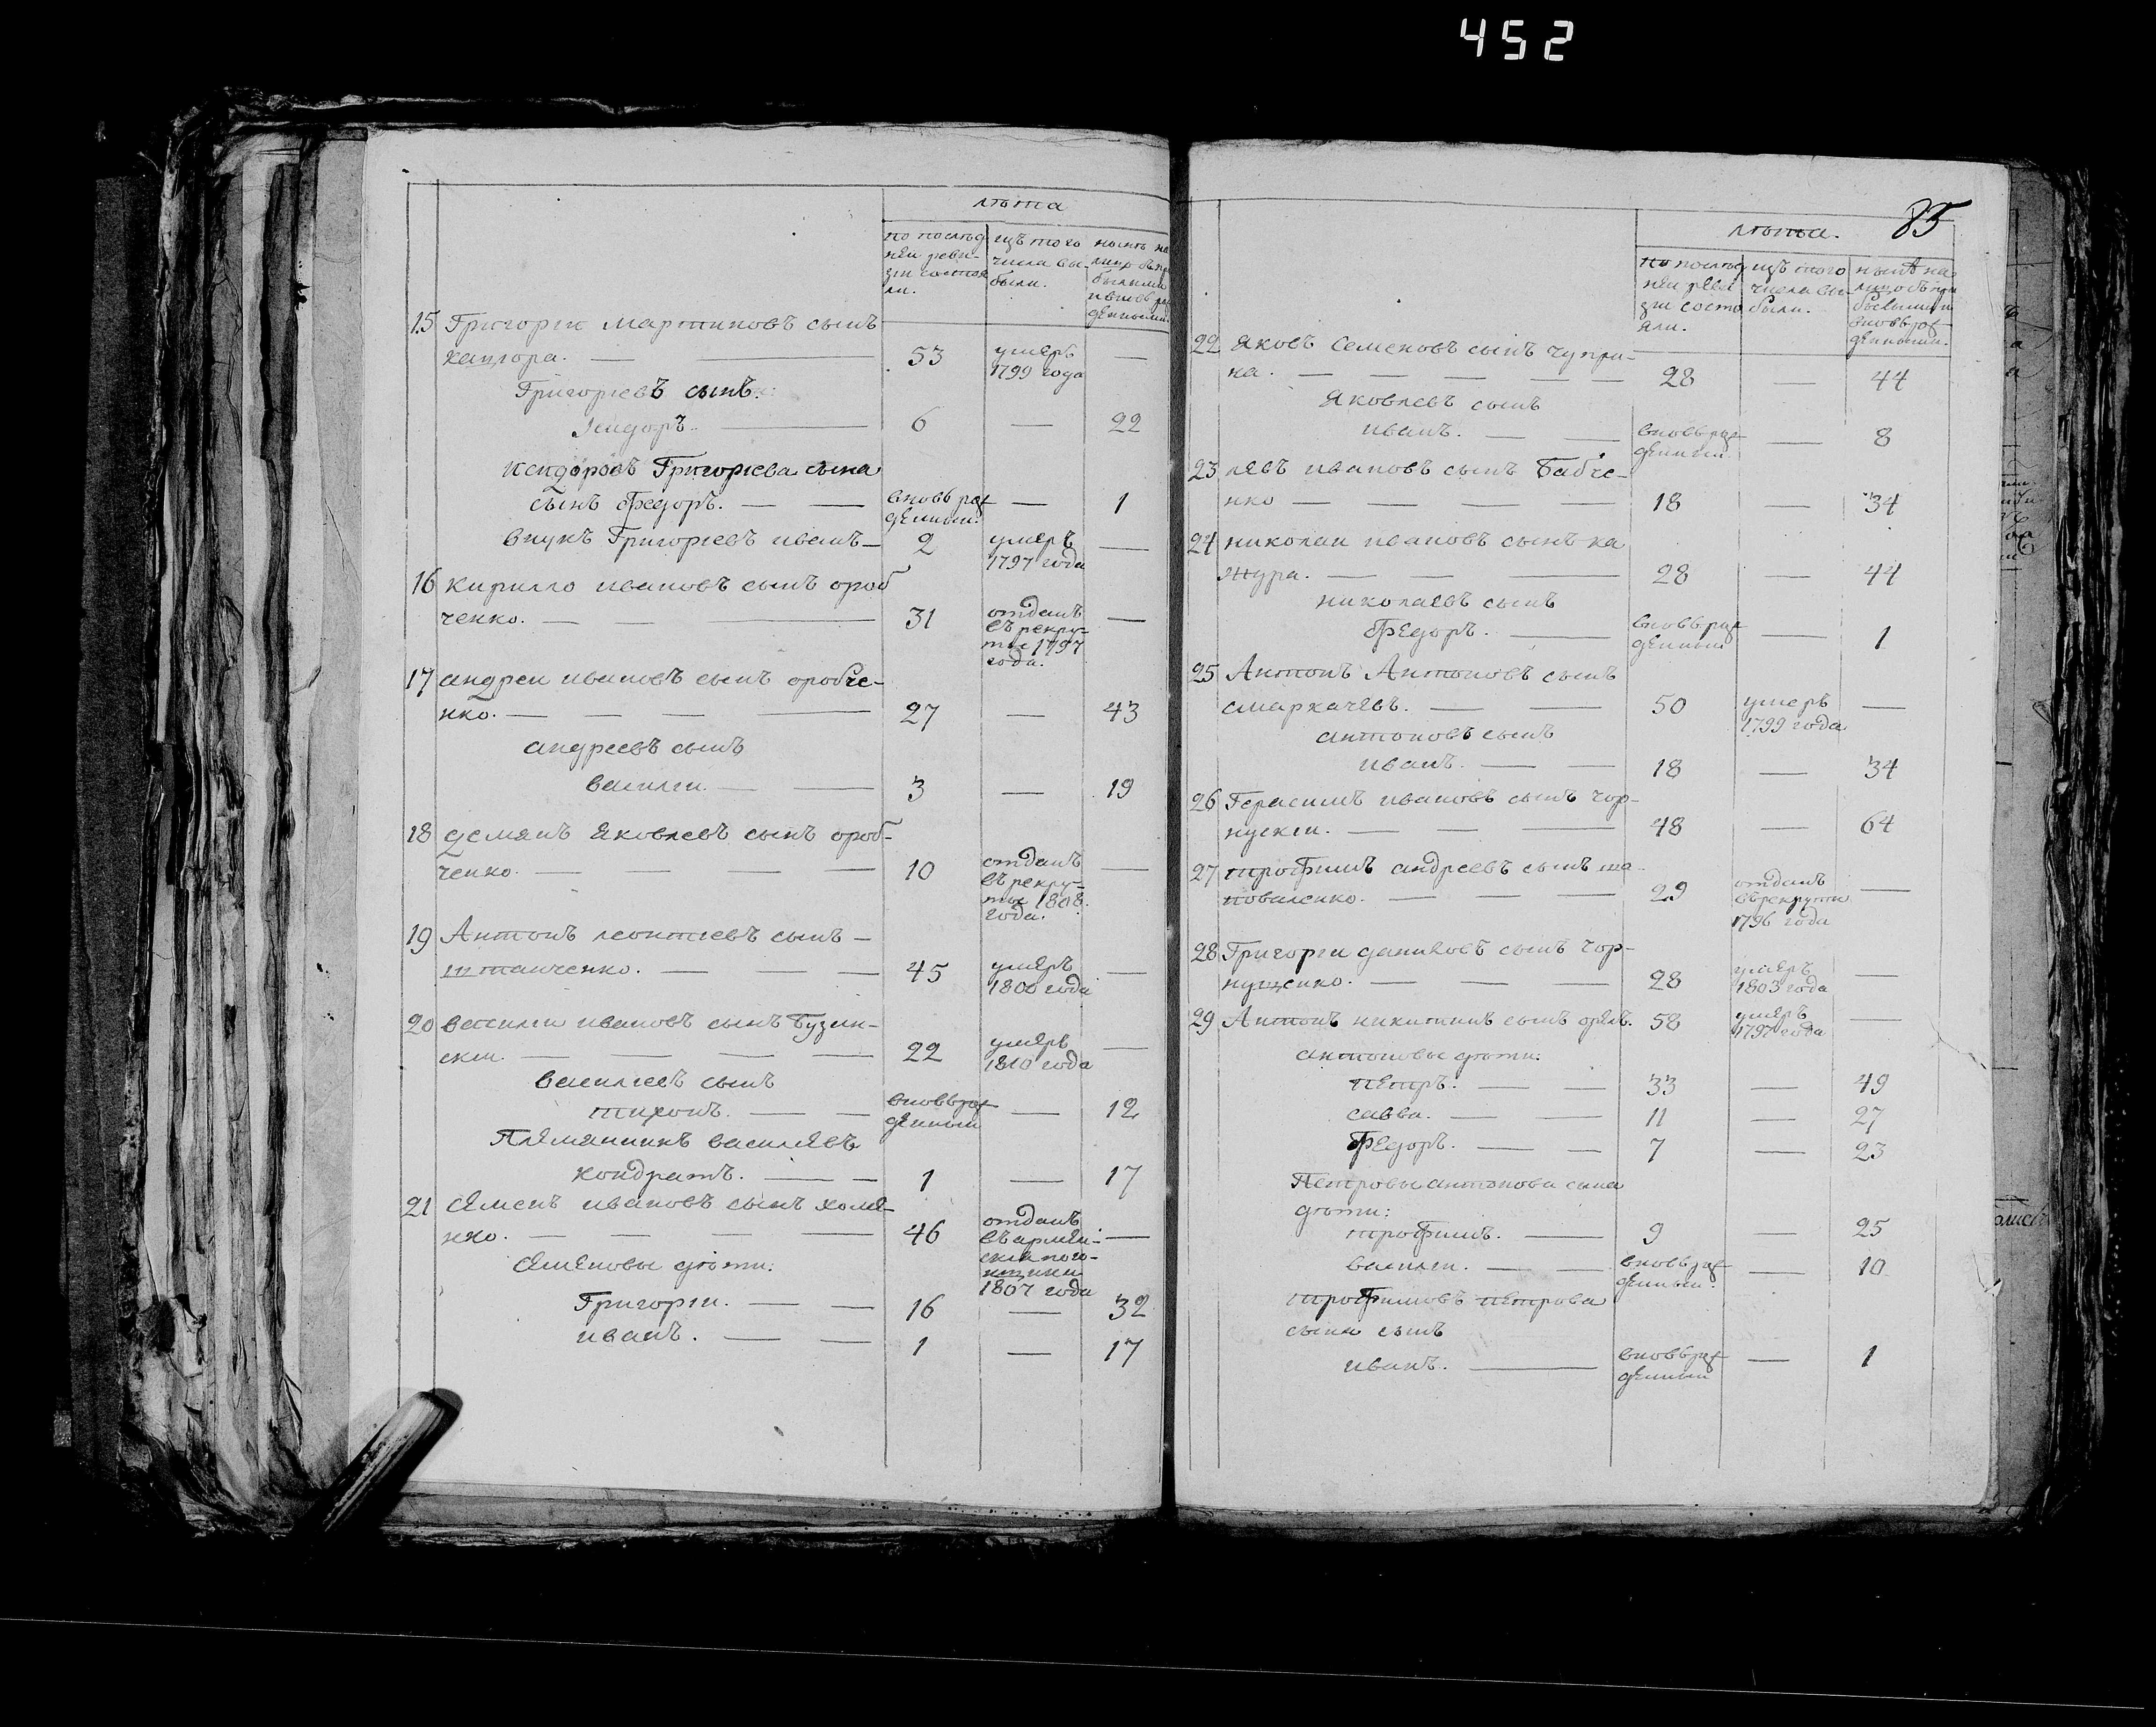 452
лѣта
по послѣд ней реви- зiи состоя ли.
изъ того числа вы- были.
нынѣ на лицо съ при былыми и вновь рож денными.
15 Григорiи мартиновъ сынъ
кацюра. — 53 умеръ 1799 года —
Григорiевъ сынъ:
Исидоръ. — 6 — 22
исидоровъ Григорiева сына
сынъ Федоръ. — вновь рож денныи. — 1
внукъ Григорiевъ иванъ — 2 умеръ 1797 года —
16 кирилло ивановъ сынъ ороб
ченко. — 31 отданъ въ рекру- ты 1797 года. —
17 андреи ивановъ сынъ оробче-
нко. — 27 — 43
андреевъ сынъ
василiи. — 3 — 19
18 демянъ яковлевъ сынъ ороб-
ченко. — 10 отданъ въ рекру- ты 1808 года. —
19 Антонъ леонтiевъ сынъ —
штанченко. — 45 умеръ 1800 года —
20 василiи ивановъ сынъ Бузин-
скiи. — 22 умеръ 1810 года —
василiевъ сынъ
тихонъ. — вновь рож денныи — 12
Племянникъ василiевъ
кондратъ. — 1 — 17
21 семенъ ивановъ сынъ хоме-
нко. — 46 отданъ въ армеи- скiя пого- нщики 1807 года —
семеновы дѣти:
Григорiи. — 16 — 32
иванъ. — 1 — 17
85
лѣта.
по послѣд ней реви зiи состо яли.
изъ того числа вы- были.
нынѣ на лицо съ при бывшими вновь рож денными.
22 яковъ Семеновъ сынъ чупри-
на. — 28 — 44
яковлевъ сынъ
иванъ. — вновь рож денныи — 8
23 левъ ивановъ сынъ Бабче-
нко — 18 — 34
24 николаи ивановъ сынъ ка
жура. — 28 — 44
николаевъ сынъ
Федоръ. — вновь рож денныи — 1
25 Антонъ Антоновъ сынъ
смаркачевъ. — 50 умеръ 1799 года —
антоновъ сынъ
иванъ. — 18 — 34
26 Герасимъ ивановъ сынъ чор-
нускiи. — 48 — 64
27 трофимъ андреевъ сынъ ша-
поваленко. — 29 отданъ в рекруты 1796 года —
28 Григорiи даниловъ сынъ чор-
нущенко. — 28 умеръ 1803 года —
29 Антонъ никитинъ сынъ орелъ. 58 умеръ 1797 года —
антоновы дѣти:
петръ. — 33 — 49
савва. — 11 — 27
Федоръ. — 7 — 23
Петровы антонова сына
дѣти:
трофимъ. — 9 — 25
василiи. — вновь рож денныи. — 10
трофимовъ петрова
сына сынъ
иванъ. — вновь рож денныи — 1